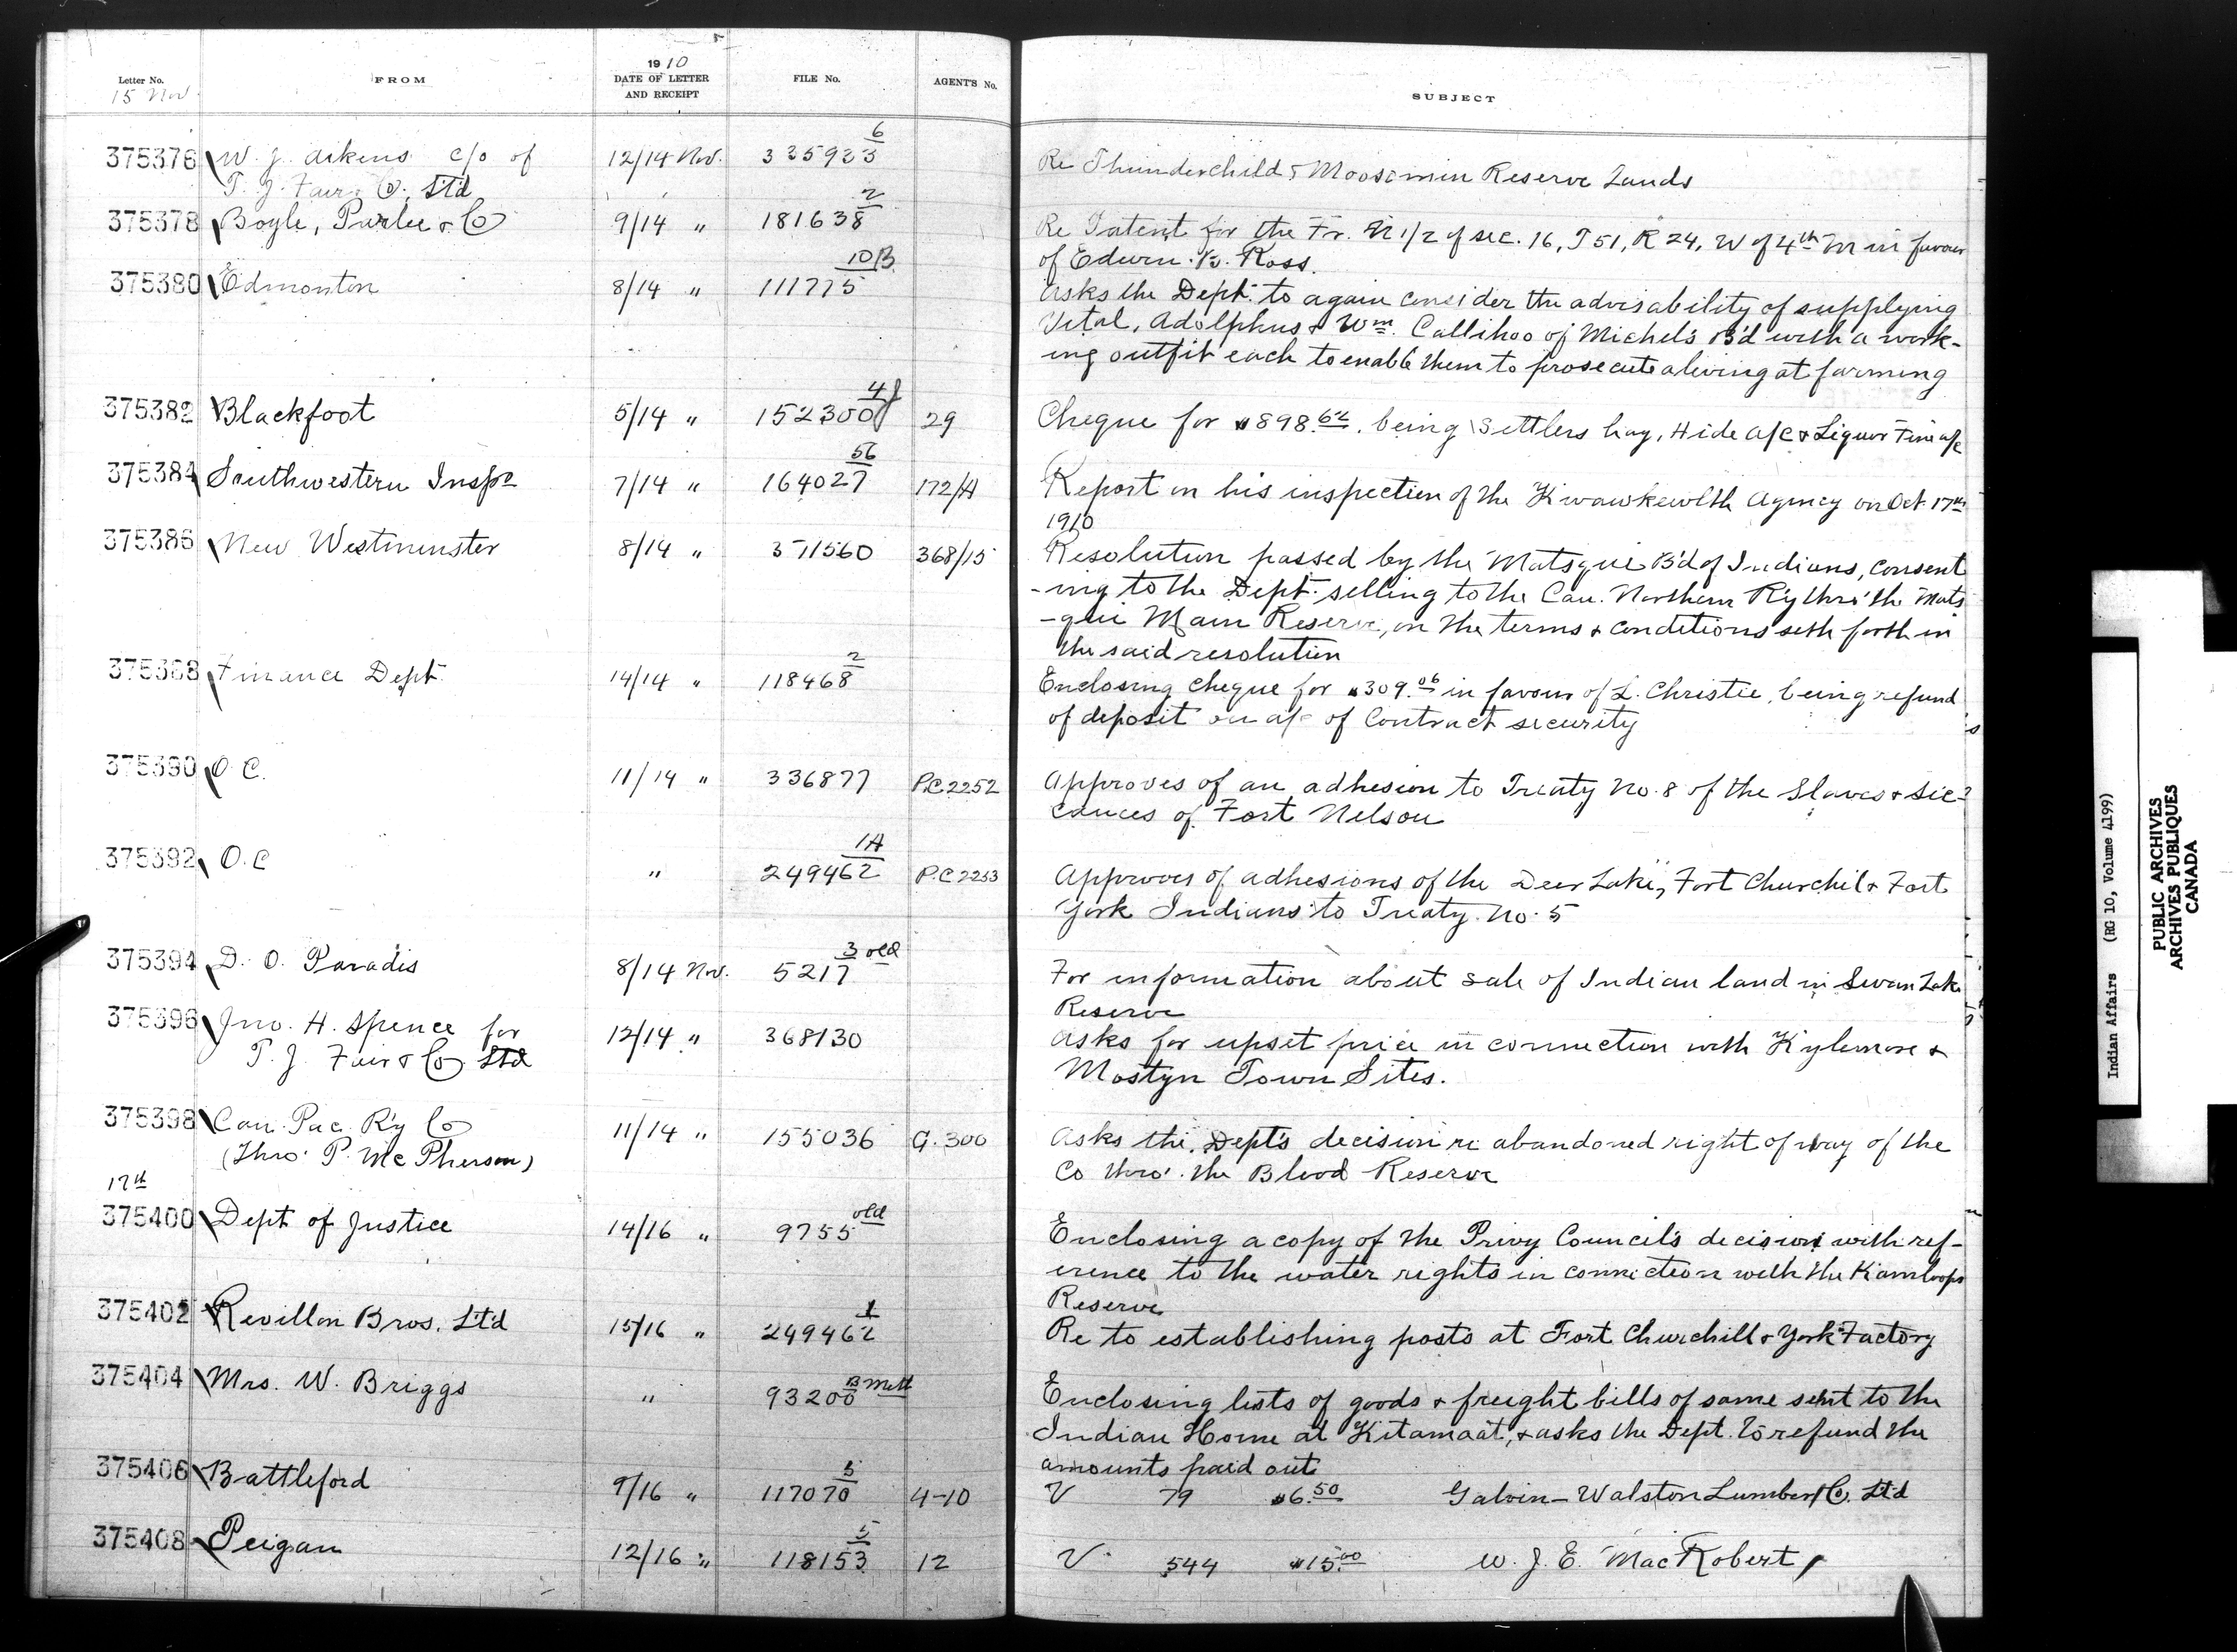 Letter No.
FROM
1910
DATE OF LETTER
AND RECEIPT
FILE No.
AGENT'S No.
SUBJECT
15 Nov
375376 W. J. Aikens c/o of 12/14 Nov. 335933 6 Re Thunderchild & Moosomin Reserve Lands
T. J. Fair & Co. Ltd
375378 Boyle, Parlee & Co 9/14 " 181638 2 Re Patent for the Fr. N 1/2 of sec. 16, T 51, R 24, W of 4th M in favour
of Edwin B. Ross.
375380 Edmonton 8/14 " 111775 10B Asks the Dept. to again consider the advisability of supplying
Vital, Adolphus & Wm. Callihoo of Michel's B'd with a work-
ing outfit each to enable them to prosecute a living at farming
375382 Blackfoot 5/14 " 152300 29 Cheque for $898.62. being Settlers hay, Hide a/c & Liquor Fine a/c
375384 Southwestern Inspr 7/14 " 164027 56 172/A Report on his inspection of the Kwawkewlth Agency on Oct. 17th
1910
375386 New Westminster 8/14 " 371560 368/15 Resolution passed by the Matsqui B'd of Indians, consent
-ing to the Dept. selling to the Can. Northern R'y thro' the Mats
-qui Main Reserve, on the terms & conditions seth forth in
the said resolution
375388 Finance Dept. 14/14 " 118468 2 Enclosing cheque for $309.06 in favour of L. Christie, being refund
of deposit on a/c of Contract security
375390 O C. 11/14 " 336877 P.C. 2252 Approves of an adhesion to Treaty No. 8 of the Slaves & Sic-
cances of Fort Nelson
375392 O. C " 249462 1A P.C 2253 Approves of adhesions of the Deer Lake, Fort Churchil & Fort
York Indians to Treaty No. 5
375394 D. O. Paradis 8/14 Nov. 5217 3 old For information about sale of Indian land in Swan Lake
Reserve
375396 Jno. H. Spence for 12/14 " 368130 Asks for upset price in connection with Kylemore &
T. J. Fair & Co Ltd Mostyn Town Sites.
375398 Can. Pac. R'y Co 11/14 " 155036 G. 300 Asks the Dept's decision re abandoned right of way of the
(Thro' P. McPherson) Co thro' the Blood Reserve
17th
375400 Dept of Justice 14/16 " 9755 old Enclosing a copy of the Privy Council's decision with ref-
erence to the water rights in connection with the Kamloops
Reserve
375402 Revillon Bros. Ltd 15/16 " 249462 1 Re to establishing posts at Fort Churchill & York Factory
375404 Mrs. W. Briggs " 93200 Enclosing lists of goods & freight bills of same sent to the
Indian Home at Kitamaat, & asks the Dept. to refund the
amounts paid out
375406 Battleford 9/16 " 117070 5 4-10 V 79 $6.50 Galvin-Walston Lumber Co. Ltd
375408 Peigan 12/16 " 118153 5 12 V 544 $15.00 W. J. E. MacRobert
Indian Affairs (RG 10, Volume 4199)
PUBLIC ARCHIVES
ARCHIVES PUBLIQUES
CANADA